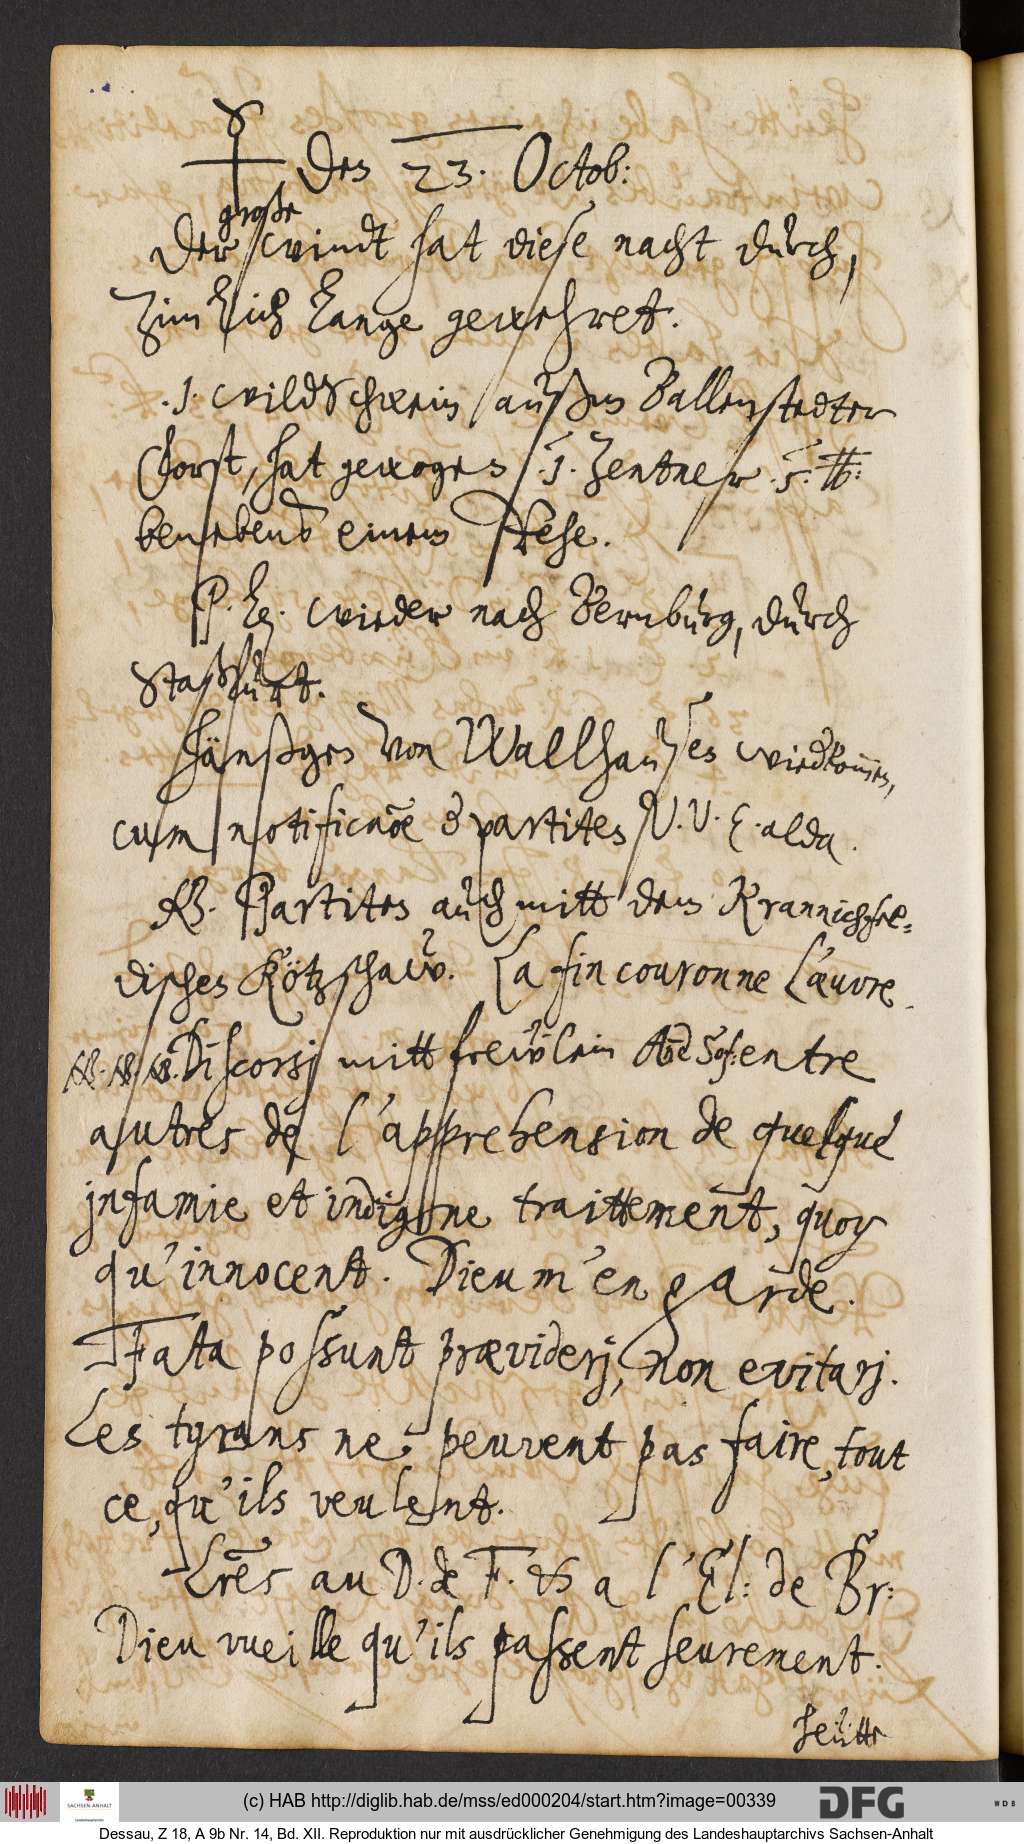 ☿ den 23. Octob:
große
Der windt hat diese nacht durch,
Zimlich lange gewehret.
.1. wildschwein außm Ballenstedter
Forst, hat gewogen .1. Zentner .5. ℔:
benebens einem Rehe.
P. H. wieder nach Bernburg, durch
Staßfurt.
Hänßgen von Wallhausen wiedkommen,
cum notificnõe partites N. V. E. alda.
NB. Partites auch mitt dem Krannichfel=
dischen Kötzschaw. La fin couronne l'œuvre.
NB. NB. NB. Discorsj mitt frewlein Sof: entre
autres de l'apprehension de quelque
jnfamie et indigne traittement, quoy
qu'innocent. Dieu m'en garde.
Fata possunt præviderj, non evitarj.
Les tyrans ne peuvent pas faire, tout
ce, qu'ils veulent.
Lr̃es au D. de F. & a l'El: de Br:
Dieu vueille qu'ils passent seurement.
Heütte
(c) HAB http://diglib.hab.de/mss/ed000204/start.htm?image=00339
SACHSEN-ANHALT
Landeshauptarchiv
DFG
WDB
Dessau, Z 18, A 9b Nr. 14, Bd. XII. Reproduktion nur mit ausdrücklicher Genehmigung des Landeshauptarchivs Sachsen-Anhalt